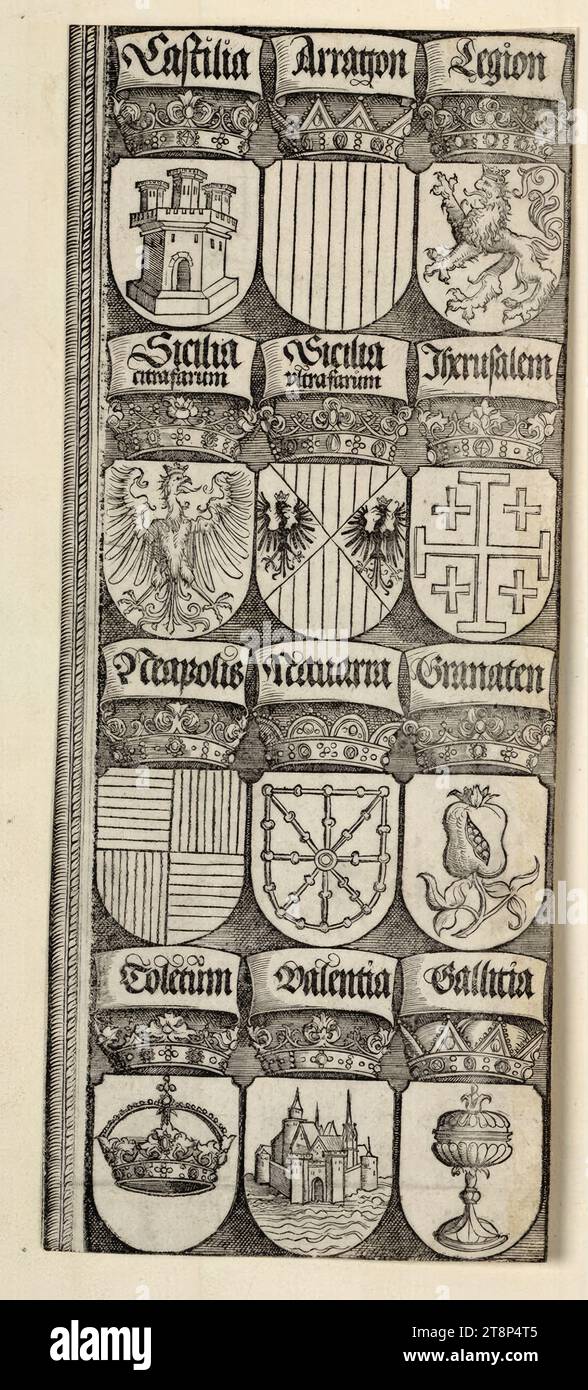 Castilia Arragon Legion
Sicilia Sicilia Jherusalem
citrafarum vltrafarum
Neapolis Nauarra Granaten
Toletum Valentia Gallicia
alamy
Image ID: 2T8P4T5
www.alamy.com